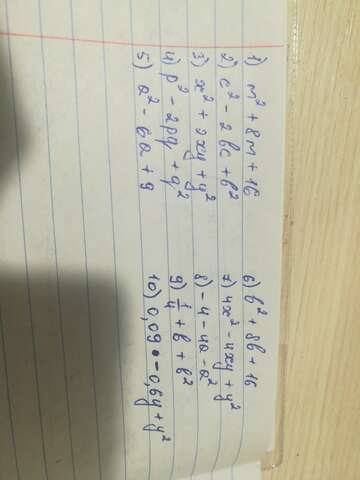 1) m² + 8m + 16
2) c² - 2bc + b²
3) x² + 2xy + y²
4) p² - 2pq + q²
5) a² - 6a + 9
6) b² + 8b + 16
7) 4x² - 4xy + y²
8) - 4 - 4a - a²
9) 1/4 + b + b²
10) 0,09 - 0,6y + y²